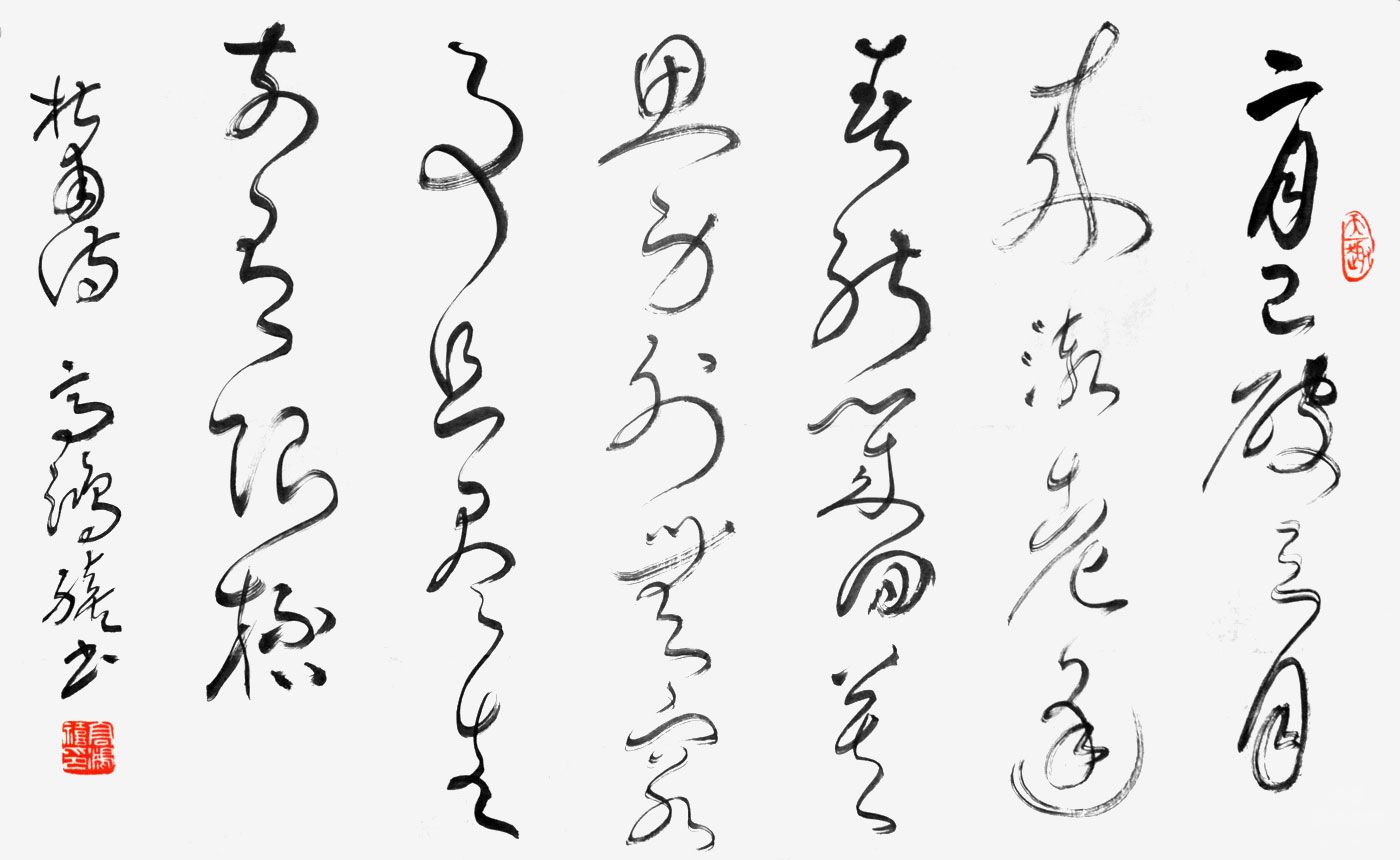 天趣
二月已破三月
來漸老逢
春能幾回莫
思身外無窮
事且盡生
前有限杯
杜甫詩 高鴻書